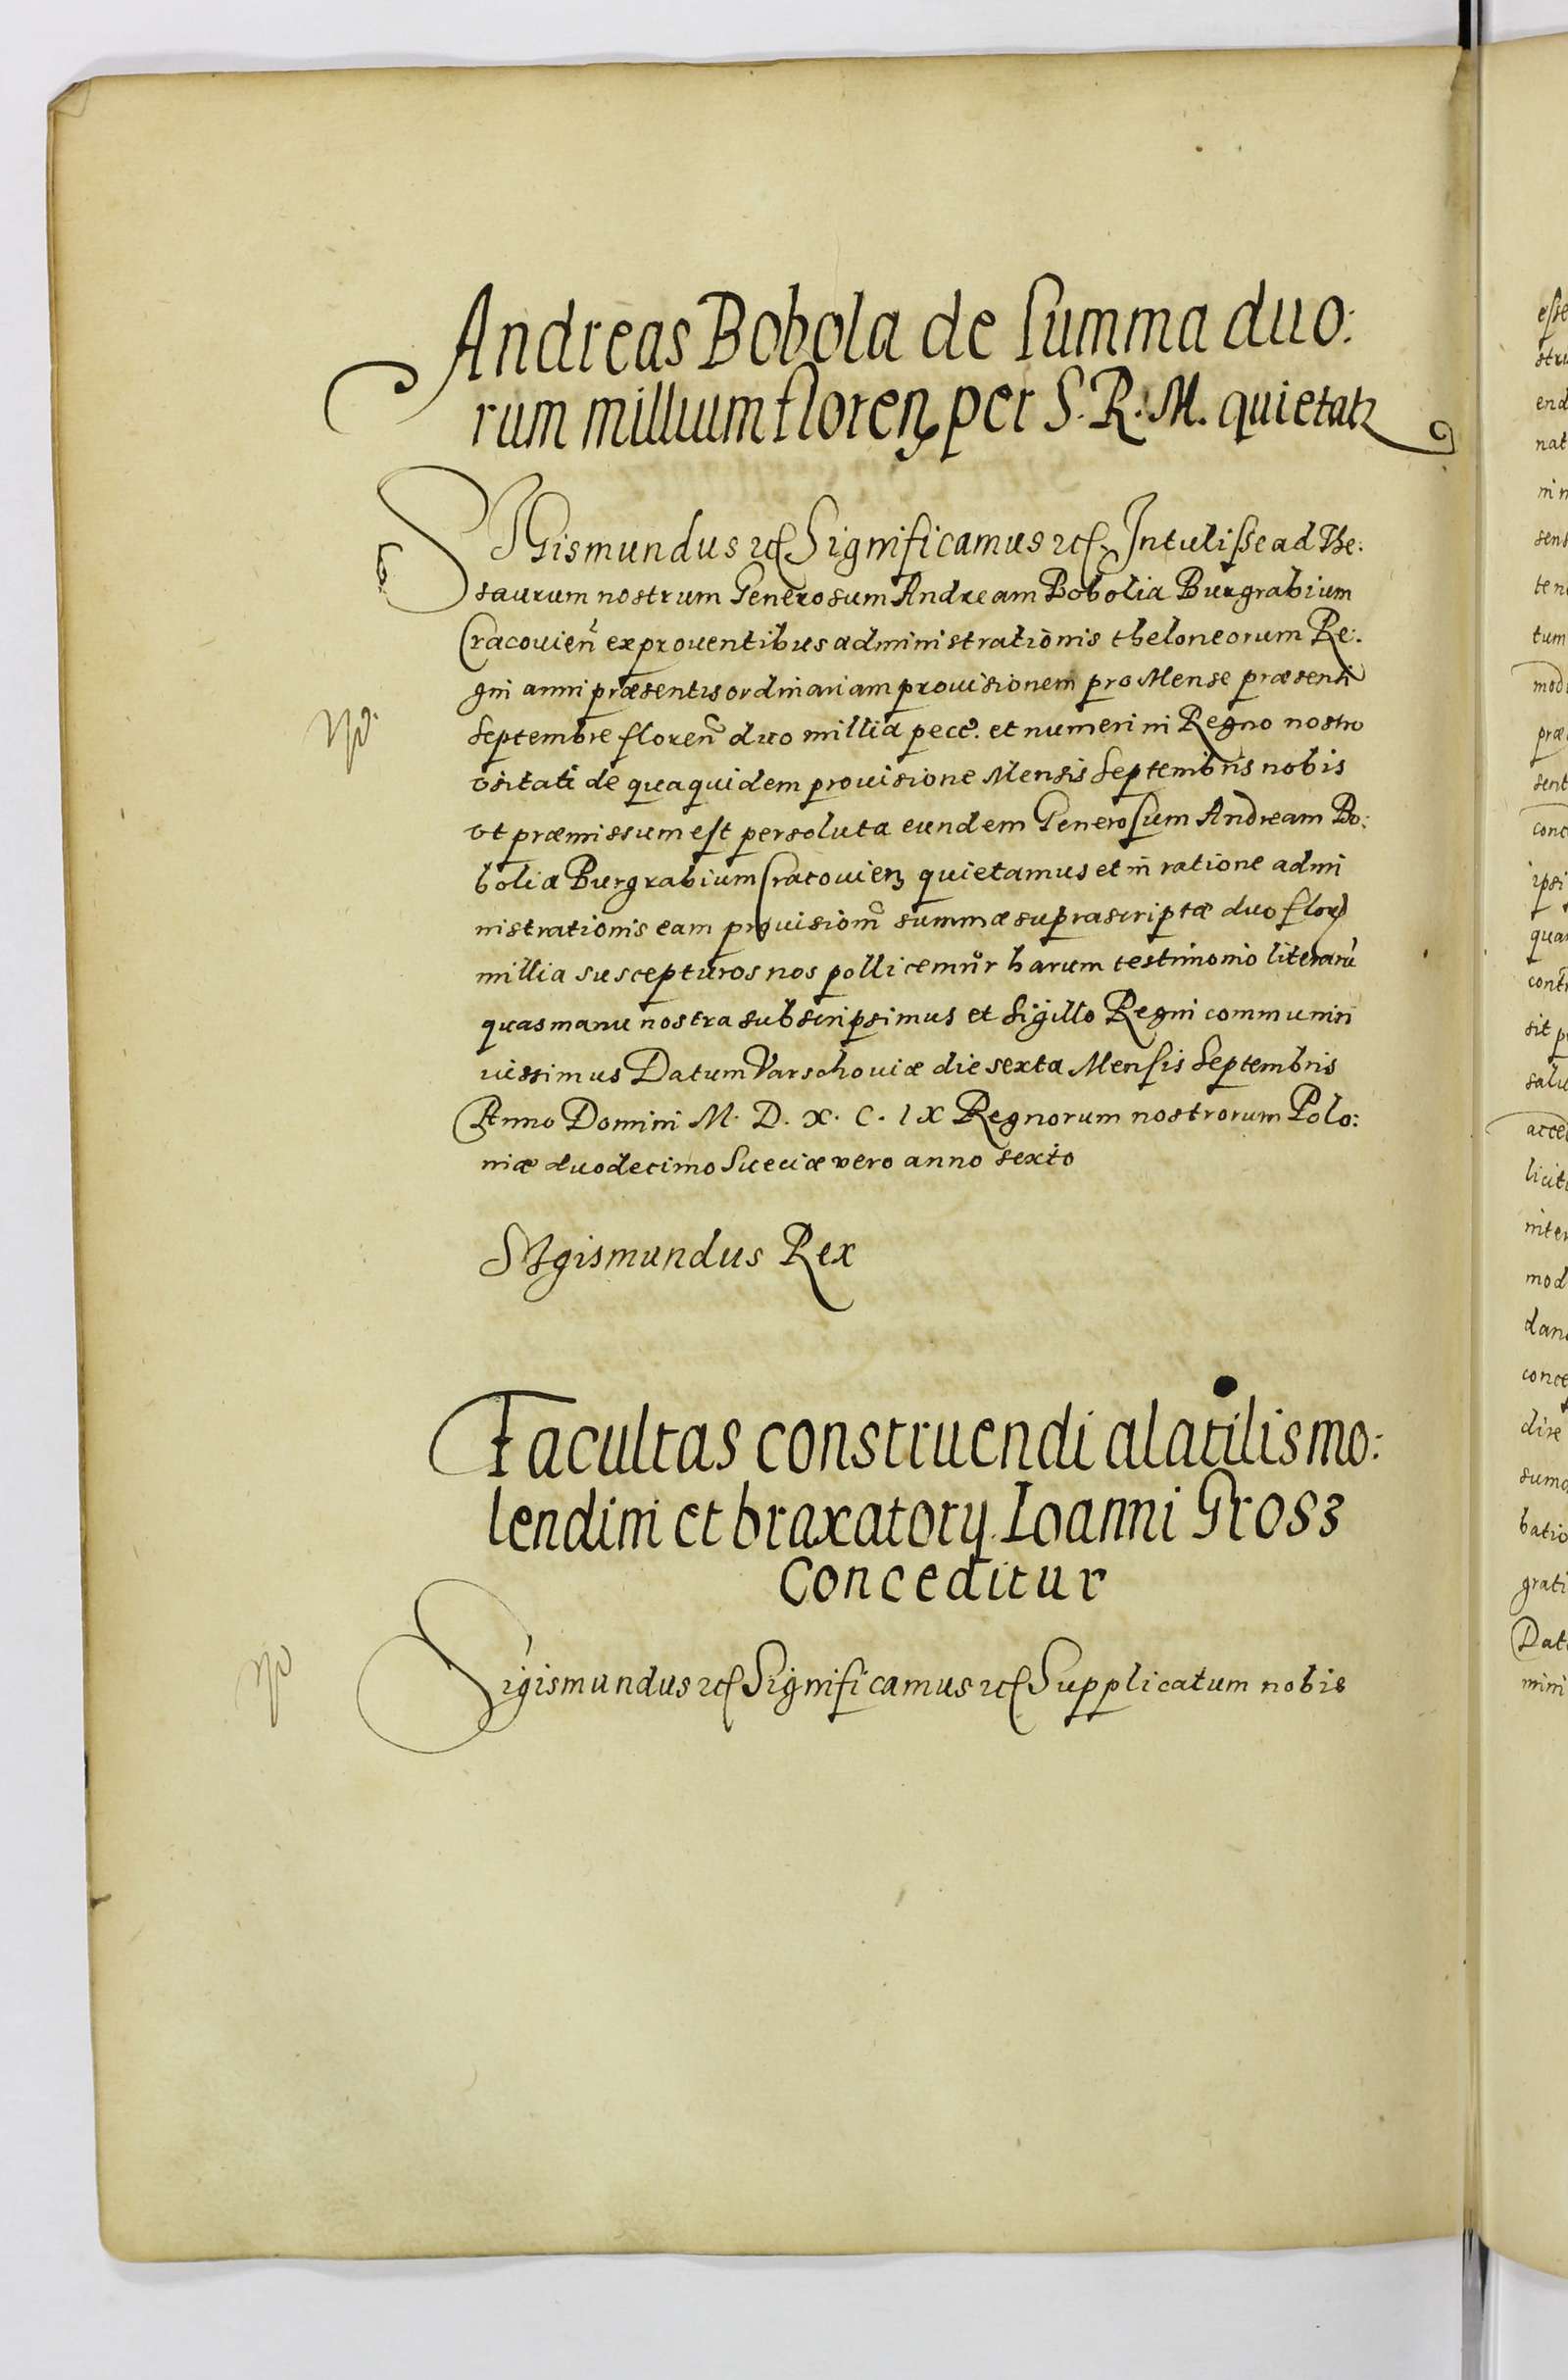 Andreas Bobola de summa duo:
rum millium floren per S. R. M. quietatr
SIGismundus etc Significamus etc Intulisse ad The:
saurum nostrum Generosum Andream Bobolia Burgrabium
Cracovien ex proventibus administrationis theloneorum Re:
gni anni præsentis ordinariam provisionem pro Mense præsenti
Septembre floren duo millia pecc. et numeri in Regno nostro
vsitati de qua quidem provisione Mensis Septembris nobis
vt præmissum est persoluta eundem Generosum Andream Bo:
bolia Burgrabium Cracovien quietamus et in ratione admi
nistrationis eam provisionẽ summæ suprascriptæ duo flor
millia suscepturos nos pollicemur harum testimonio literarũ
quas manu nostra subscripsimus et Sigillo Regni communiri
iussimus Datum Varschoviæ die sexta Mensis Septembris
Anno Domini M. D. X. C. IX Regnorum nostrorum Polo:
niæ duodecimo Sueciæ vero anno sexto
SIgismundus Rex
Facultas construendi alatilis mo:
lendini et braxatorij Ioanni Grosz
Conceditur
Sigismundus etc Significamus etc Supplicatum nobis